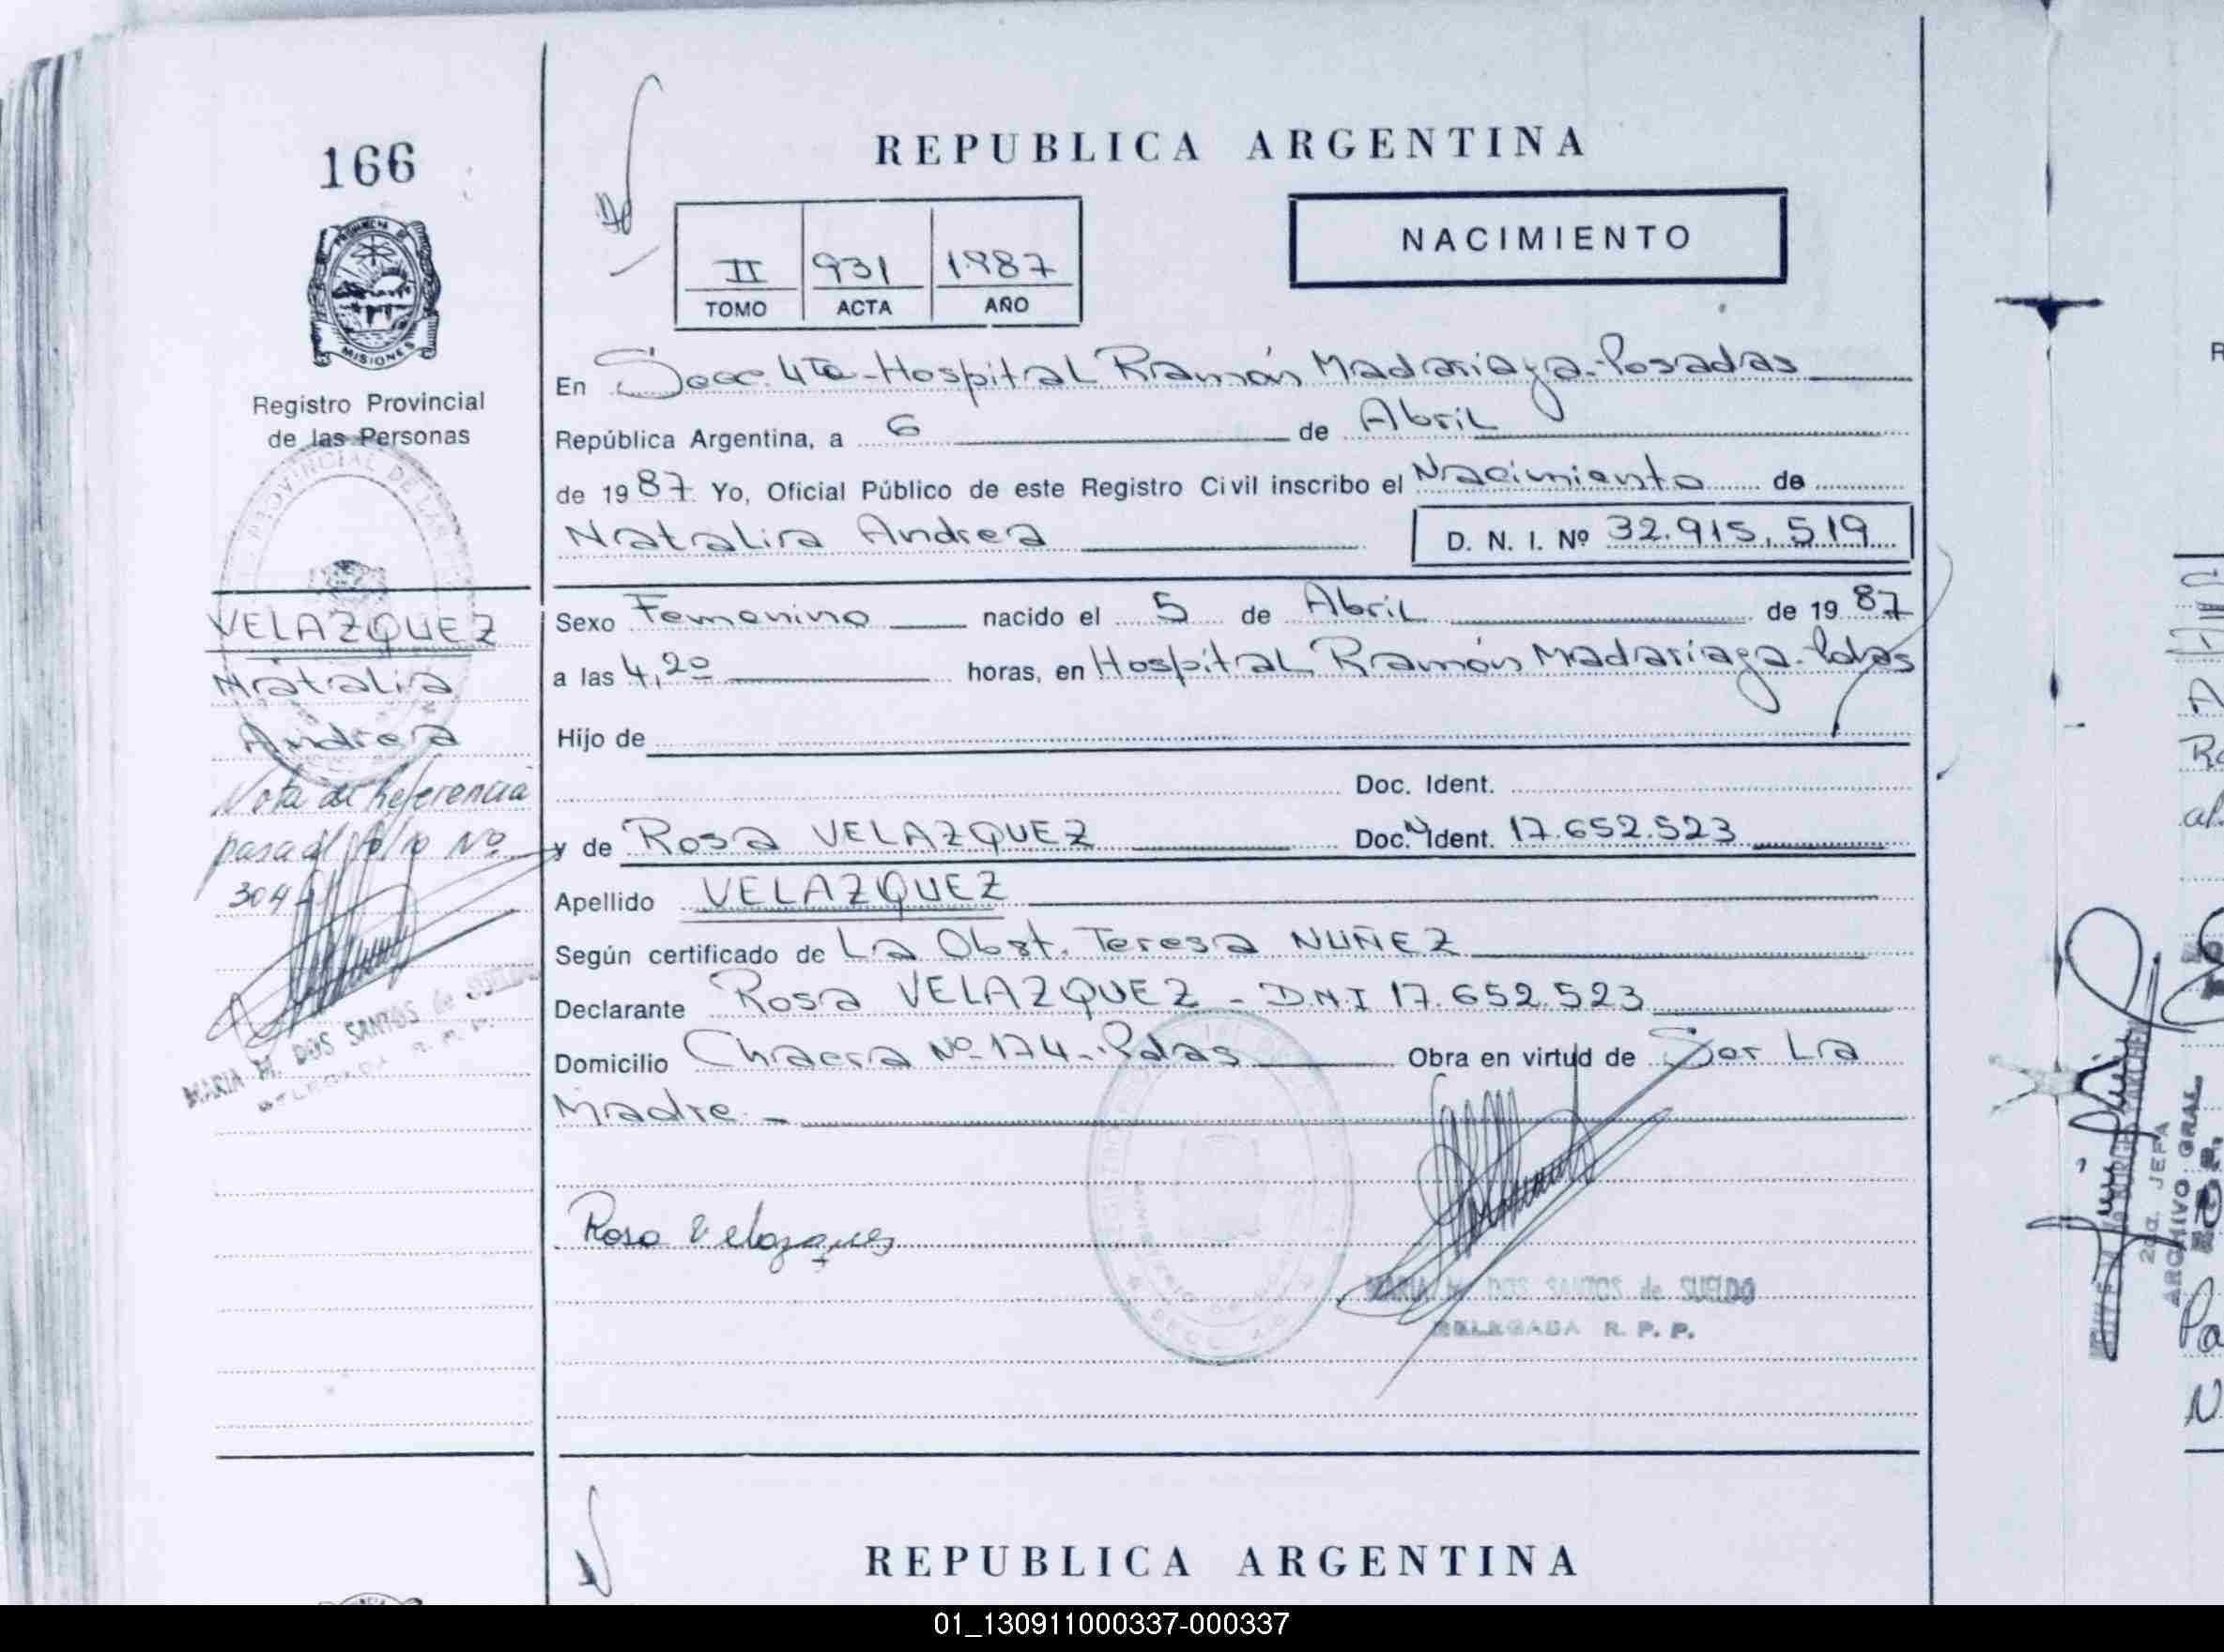 166
PROVINCIA DE
MISIONES
Registro Provincial
de las Personas
PROVINCIAL DE LAS
VELAZQUEZ
Natalia
Andrea
Nota de Referencia
pasa al folio Nº
304
MARIA M. DOS SANTOS de SUELDO
REPUBLICA ARGENTINA
II 931 1987
TOMO ACTA AÑO
NACIMIENTO
En Secc. 4ta-Hospital Ramón Madariaga-Posadas
República Argentina, a 6 de Abril
de 1987 Yo, Oficial Público de este Registro Civil inscribo el Nacimiento de
Natalia Andrea D. N. I. Nº 32.915.519
Sexo Femenino nacido el 5 de Abril de 1987
a las 4,20 horas, en Hospital Ramón Madariaga-Pdas
Hijo de
Doc. Ident.
y de Rosa VELAZQUEZ Doc. Ident. 17.652.523
Apellido VELAZQUEZ
Según certificado de La Obst. Teresa NUÑEZ
Declarante Rosa VELAZQUEZ - D.N.I 17.652.523
Domicilio Chacra Nº 174-Pdas Obra en virtud de Ser La
Madre.-
Rosa Velazquez
MARIA M. DOS SANTOS de SUELDO
DELEGADA R. P. P.
REPUBLICA ARGENTINA
2da. JEFA
ARCHIVO GRAL.
01_130911000337-000337